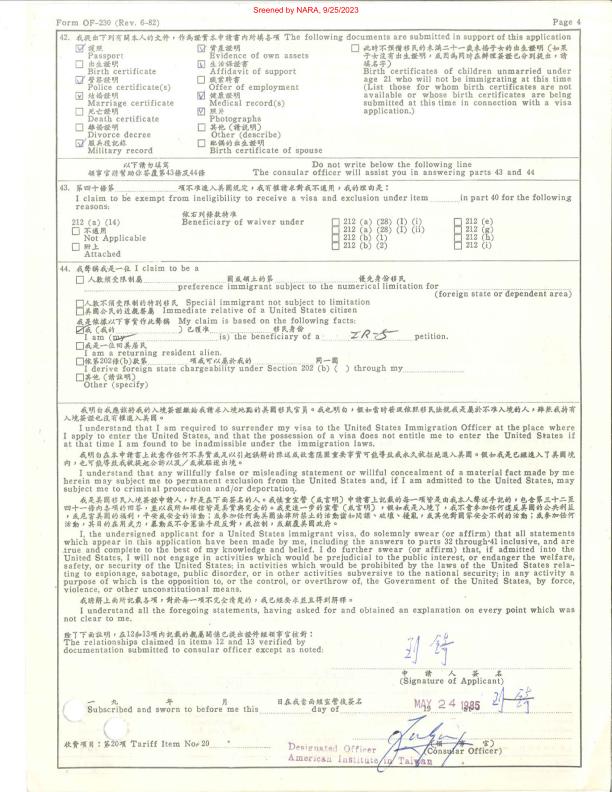 Sreened by NARA, 9/25/2023
Form OF-230 (Rev. 6-82) Page 4
42. 我提出下列有關本人的文件，作為證實本申請書內所填各項 The following documents are submitted in support of this application
護照
Passport
出生證明
Birth certificate
警察證明
Police certificate(s)
結婚證明
Marriage certificate
死亡證明
Death certificate
離婚證明
Divorce decree
服兵役記錄
Military record
資產證明
Evidence of own assets
生活保證書
Affidavit of support
職業聘書
Offer of employment
健康證明
Medical record(s)
照片
Photographs
其他（請說明）
Other (describe)
配偶的出生證明
Birth certificate of spouse
此時不預備移民的未滿二十一歲未婚子女的出生證明（如果
子女沒有出生證明，或因為同時在辦理簽證已分別提出，請
填名字）
Birth certificates of children unmarried under
age 21 who will not be immigrating at this time
(List those for whom birth certificates are not
available or whose birth certificates are being
submitted at this time in connection with a visa
application.)
以下請勿填寫 Do not write below the following line
領事官將幫助你答覆第43條及44條 The consular officer will assist you in answering parts 43 and 44
43. 第四十條第 項不准進入美國規定，我有權請求對我不適用，我的理由是：
I claim to be exempt from ineligibility to receive a visa and exclusion under item in part 40 for the following
reasons:
依右列條款特准
212 (a) (14) Beneficiary of waiver under
不適用
Not Applicable
附上
Attached
212 (a) (28) (I) (i)
212 (a) (28) (I) (ii)
212 (b) (1)
212 (b) (2)
212 (e)
212 (g)
212 (h)
212 (i)
44. 我聲稱我是一位 I claim to be a
人數須受限制屬 國或領土的第 優先身份移民
preference immigrant subject to the numerical limitation for
(foreign state or dependent area)
人數不須受限制的特別移民 Special immigrant not subject to limitation
美國公民的近親眷屬 Immediate relative of a United States citizen
我是依據以下事實作此聲稱 My claim is based on the following facts:
我（我的 ）已獲准 移民身份
I am (my ) is) the beneficiary of a IR-5 petition.
我是一位回美居民
I am a returning resident alien.
依第202條(b)款第 項或可以屬於我的 同一國
I derive foreign state chargeability under Section 202 (b) ( ) through my
其他（請註明）
Other (specify)
I understand that I am required to surrender my visa to the United States Immigration Officer at the place where
I apply to enter the United States, and that the possession of a visa does not entitle me to enter the United States if
at that time I am found to be inadmissible under the immigration laws.
I understand that any willfully false or misleading statement or willful concealment of a material fact made by me
herein may subject me to permanent exclusion from the United States and, if I am admitted to the United States, may
subject me to criminal prosecution and/or deportation.
I, the undersigned applicant for a United States immigrant visa, do solemnly swear (or affirm) that all statements
which appear in this application have been made by me, including the answers to parts 32 through 41 inclusive, and are
true and complete to the best of my knowledge and belief. I do further swear (or affirm) that, if admitted into the
United States, I will not engage in activities which would be prejudicial to the public interest, or endanger the welfare,
safety, or security of the United States; in activities which would be prohibited by the laws of the United States rela-
ting to espionage, sabotage, public disorder, or in other activities subversive to the national security; in any activity a
purpose of which is the opposition to, or the control, or overthrow of, the Government of the United States, by force,
violence, or other unconstitutional means.
我瞭解上面所記載各項，對於每一項不完全清楚的，我已經要求並且得到解釋。
I understand all the foregoing statements, having asked for and obtained an explanation on every point which was
not clear to me.
除了下面註明，在12和13項內記載的親屬關係已提出證件經領事官核對：
The relationships claimed in items 12 and 13 verified by
documentation submitted to consular officer except as noted:
申請人簽名
(Signature of Applicant)
一九 年 月 日在我當面經宣誓後簽名
Subscribed and sworn to before me this day of MAY 24 1985
收費項目：第20項 Tariff Item No. 20
Designated Officer
American Institute in Taiwan
（領事官）
(Consular Officer)